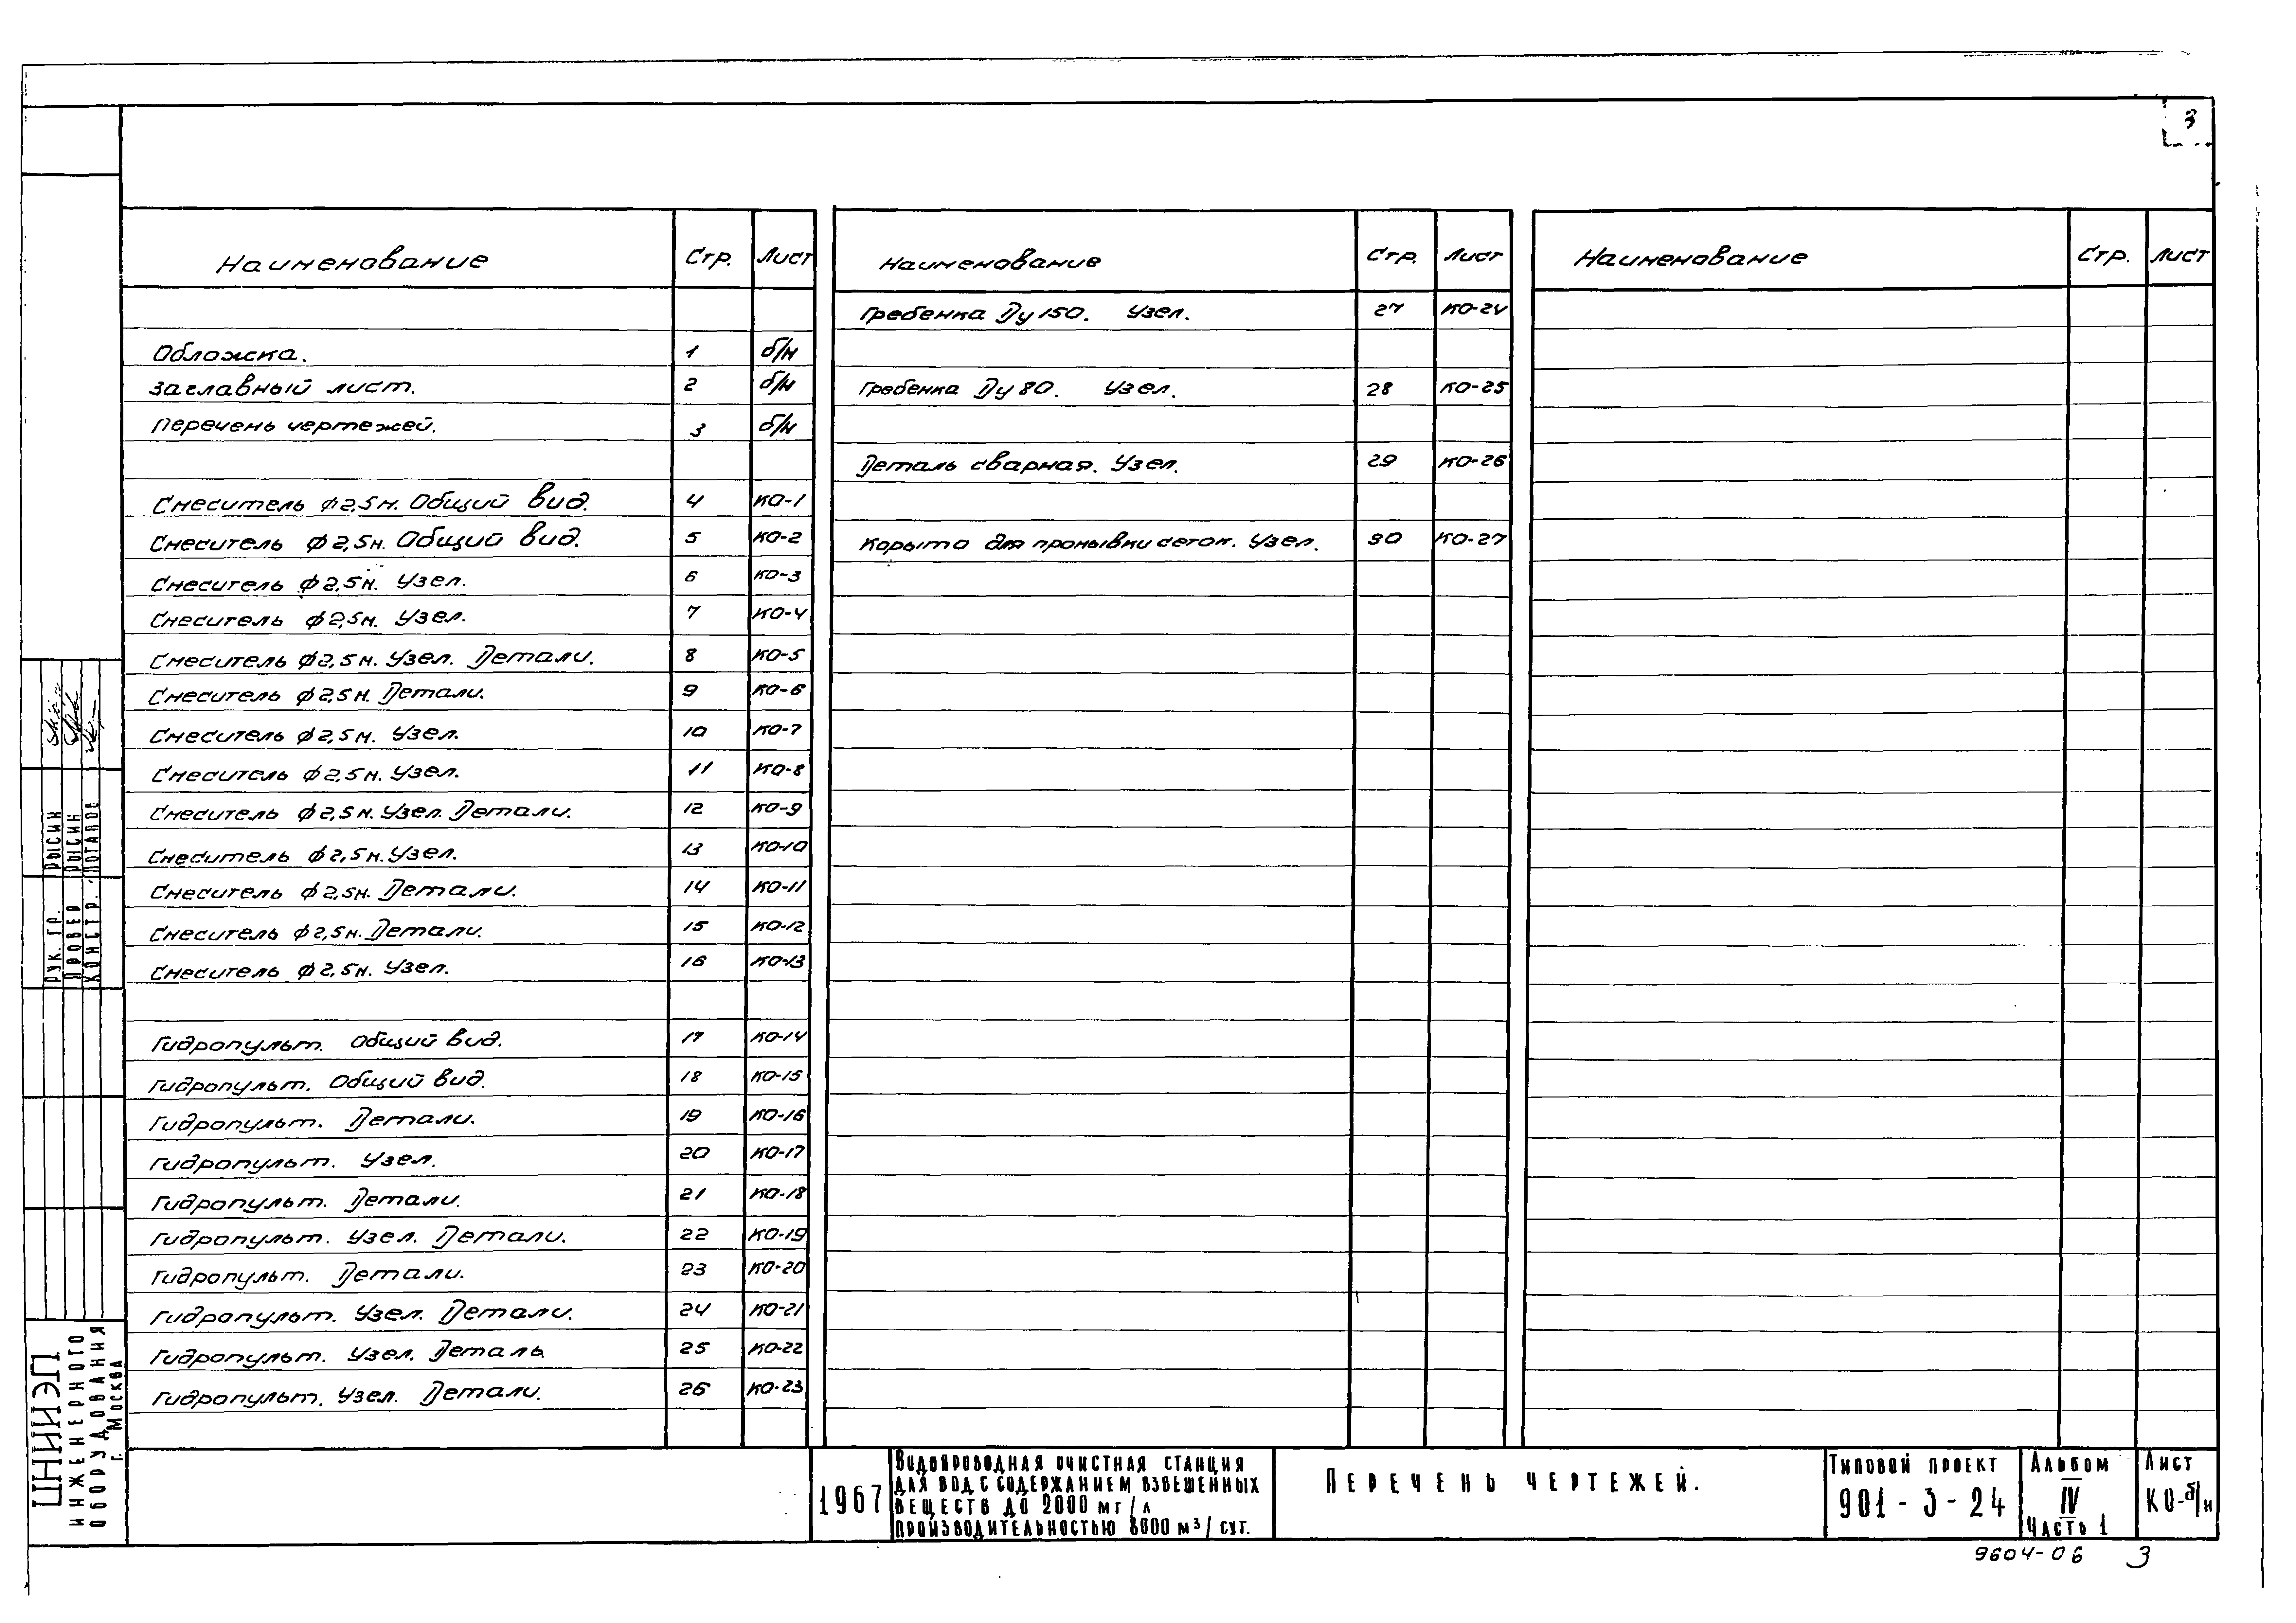 3
Наименование Стр. Лист
Обложка. 1 б/н
Заглавный лист. 2 б/н
Перечень чертежей. 3 б/н
Смеситель ф2,5м. Общий вид. 4 КО-1
Смеситель ф2,5м. Общий вид. 5 КО-2
Смеситель ф2,5м. Узел. 6 КО-3
Смеситель ф2,5м. Узел. 7 КО-4
Смеситель ф2,5м. Узел. Детали. 8 КО-5
Смеситель ф2,5м. Детали. 9 КО-6
Смеситель ф2,5м. Узел. 10 КО-7
Смеситель ф2,5м. Узел. 11 КО-8
Смеситель ф2,5м. Узел. Детали. 12 КО-9
Смеситель ф2,5м. Узел. 13 КО-10
Смеситель ф2,5м. Детали. 14 КО-11
Смеситель ф2,5м. Детали. 15 КО-12
Смеситель ф2,5м. Узел. 16 КО-13
Гидропульт. Общий вид. 17 КО-14
Гидропульт. Общий вид. 18 КО-15
Гидропульт. Детали. 19 КО-16
Гидропульт. Узел. 20 КО-17
Гидропульт. Детали. 21 КО-18
Гидропульт. Узел. Детали. 22 КО-19
Гидропульт. Детали. 23 КО-20
Гидропульт. Узел. Детали. 24 КО-21
Гидропульт. Узел. Деталь. 25 КО-22
Гидропульт. Узел. Детали. 26 КО-23
Наименование Стр. Лист
Гребенка Ду 150. Узел. 27 КО-24
Гребенка Ду 80. Узел. 28 КО-25
Деталь сварная. Узел. 29 КО-26
Корыто для промывки сеток. Узел. 30 КО-27
Наименование Стр. Лист
Рук. гр. Рысин
Провер Рысин
Констр. Потапов
ЦНИИЭП
инженерного
оборудования
г. Москва
1967
Водопроводная очистная станция
для вод с содержанием взвешенных
веществ до 2000 мг/л
производительностью 8000 м³/сут.
Перечень чертежей.
Типовой проект
901-3-24
Альбом
IV
Часть 1
Лист
КО-б/н
9604-06 3